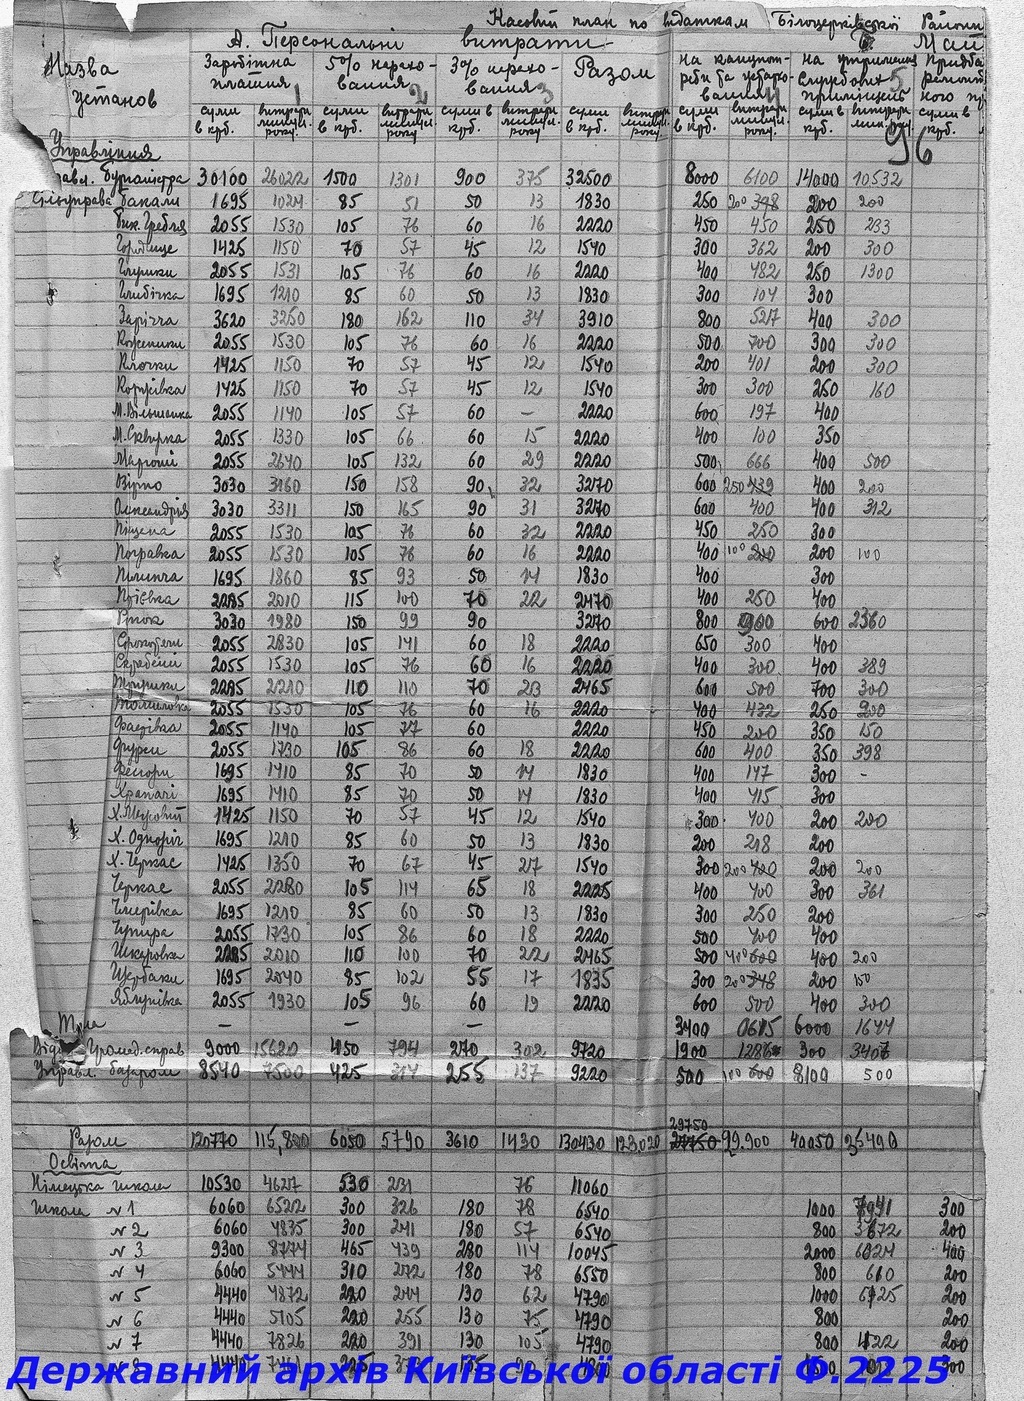 Касовий план по видаткам Білоцерківської Район
А. Персональні витрати Май
Назва установ Заробітна платня 1 5% нарахування 2 3% нарахування 3 Разом на канцпотреби та устаткування 4 на утримання службових приміщень 5 Придб ремонт
суми в крб. витрати минул. року суми в крб. витрати минул. року суми в крб. витрати минул. року суми в крб. витрати минул. року суми в крб. витрати минул. року суми в крб. витрати суми в крб.
96
Управління
Бурмістра 30100 26022 1500 1301 900 375 32500 8000 6100 14000 10532
Сільуправа Бакали 1695 1024 85 51 50 13 1830 250 200 348 200 200
Вик. Гребля 2055 1530 105 76 60 16 2220 450 450 250 233
Городище 1425 1150 70 57 45 12 1540 300 362 200 300
Глушки 2055 1531 105 76 60 16 2220 400 482 250 1300
Глибічка 1695 1210 85 60 50 13 1830 300 104 300
Заріччя 3620 3250 180 162 110 34 3910 800 5217 400 300
Кожаники 2055 1530 105 76 60 16 2220 500 700 300 300
Клочки 1425 1150 70 57 45 12 1540 200 401 200 300
Коржівка 1425 1150 70 57 45 12 1540 300 300 250 160
М. Вільшанка 2055 1140 105 57 60 – 2220 600 197 400
М. Сквирка 2055 1330 105 66 60 15 2220 400 100 350
Матюші 2055 2640 105 132 60 29 2220 500 666 400 500
Озірно 3030 3160 150 158 90 32 3270 600 250 439 400 200
Олександрія 3030 3311 150 165 90 31 3270 600 400 400 312
Піщана 2055 1530 105 76 60 32 2220 450 250 300
Поправка 2055 1530 105 76 60 16 2220 400 100 200 200 100
Пилипча 1695 1860 85 93 50 14 1830 400 300
Пії́вка 2285 2010 115 100 70 22 2470 400 250 400
Роток 3030 1980 150 99 90 3270 800 900 600 2360
2055 2830 105 141 60 18 2220 650 300 400
Скребиші 2055 1530 105 76 60 16 2220 400 300 400 389
Трушки 2285 2210 110 110 70 23 2465 600 500 700 300
Томилівка 2055 1530 105 76 60 16 2220 400 432 250 200
Фастівка 2055 1140 105 77 60 2220 450 200 350 150
Фурси 2055 1730 105 86 60 18 2220 600 400 350 398
Фесюри 1695 1410 85 70 50 14 1830 400 147 300 -
Храпачі 1695 1410 85 70 50 14 1830 400 415 300
1425 1150 70 57 45 12 1540 300 400 200 200
Х. Одноріг 1695 1210 85 60 50 13 1830 200 218 200
Х. Черкас 1425 1350 70 67 45 27 1540 300 200 400 200 200
Черкас 2055 2280 105 114 65 18 2225 400 400 300 361
Чмирівка 1695 1210 85 60 50 13 1830 300 250 200
Чупира 2055 1730 105 86 60 18 2220 500 400 400
Шкаровка 2285 2010 110 100 70 22 2465 500 400 600 400 200
Щербаки 1695 2040 85 102 55 17 1835 300 200 348 200 150
Яблунівка 2055 1930 105 96 60 19 2220 600 500 400 300
– – – 3400 0615 6000 1644
Відд. Громад. справ 9000 15620 450 794 270 302 9720 1900 1286 300 3407
Управл. базаром 8540 7500 425 314 255 137 9220 500 100 600 8100 500
29750
Разом 120770 115,800 6050 5790 3610 1430 130430 123020 27750 22.900 40050 25490
Освіта
Німецька школа 10530 4627 530 231 76 11060
Школа №1 6060 6522 300 326 180 78 6540 1000 300
№2 6060 4835 300 241 180 57 6540 800 3672 200
№3 9300 8774 465 439 280 114 10045 2000 6024 400
№4 6060 5444 310 272 180 78 6550 800 610 200
№5 4440 4872 220 244 130 62 4790 1000 6125 200
№6 4440 5105 220 255 130 75 4790 800 200
№7 4440 7826 220 391 130 105 4790 800 4122 200
№8 4440
Державний архів Київської області Ф.2225